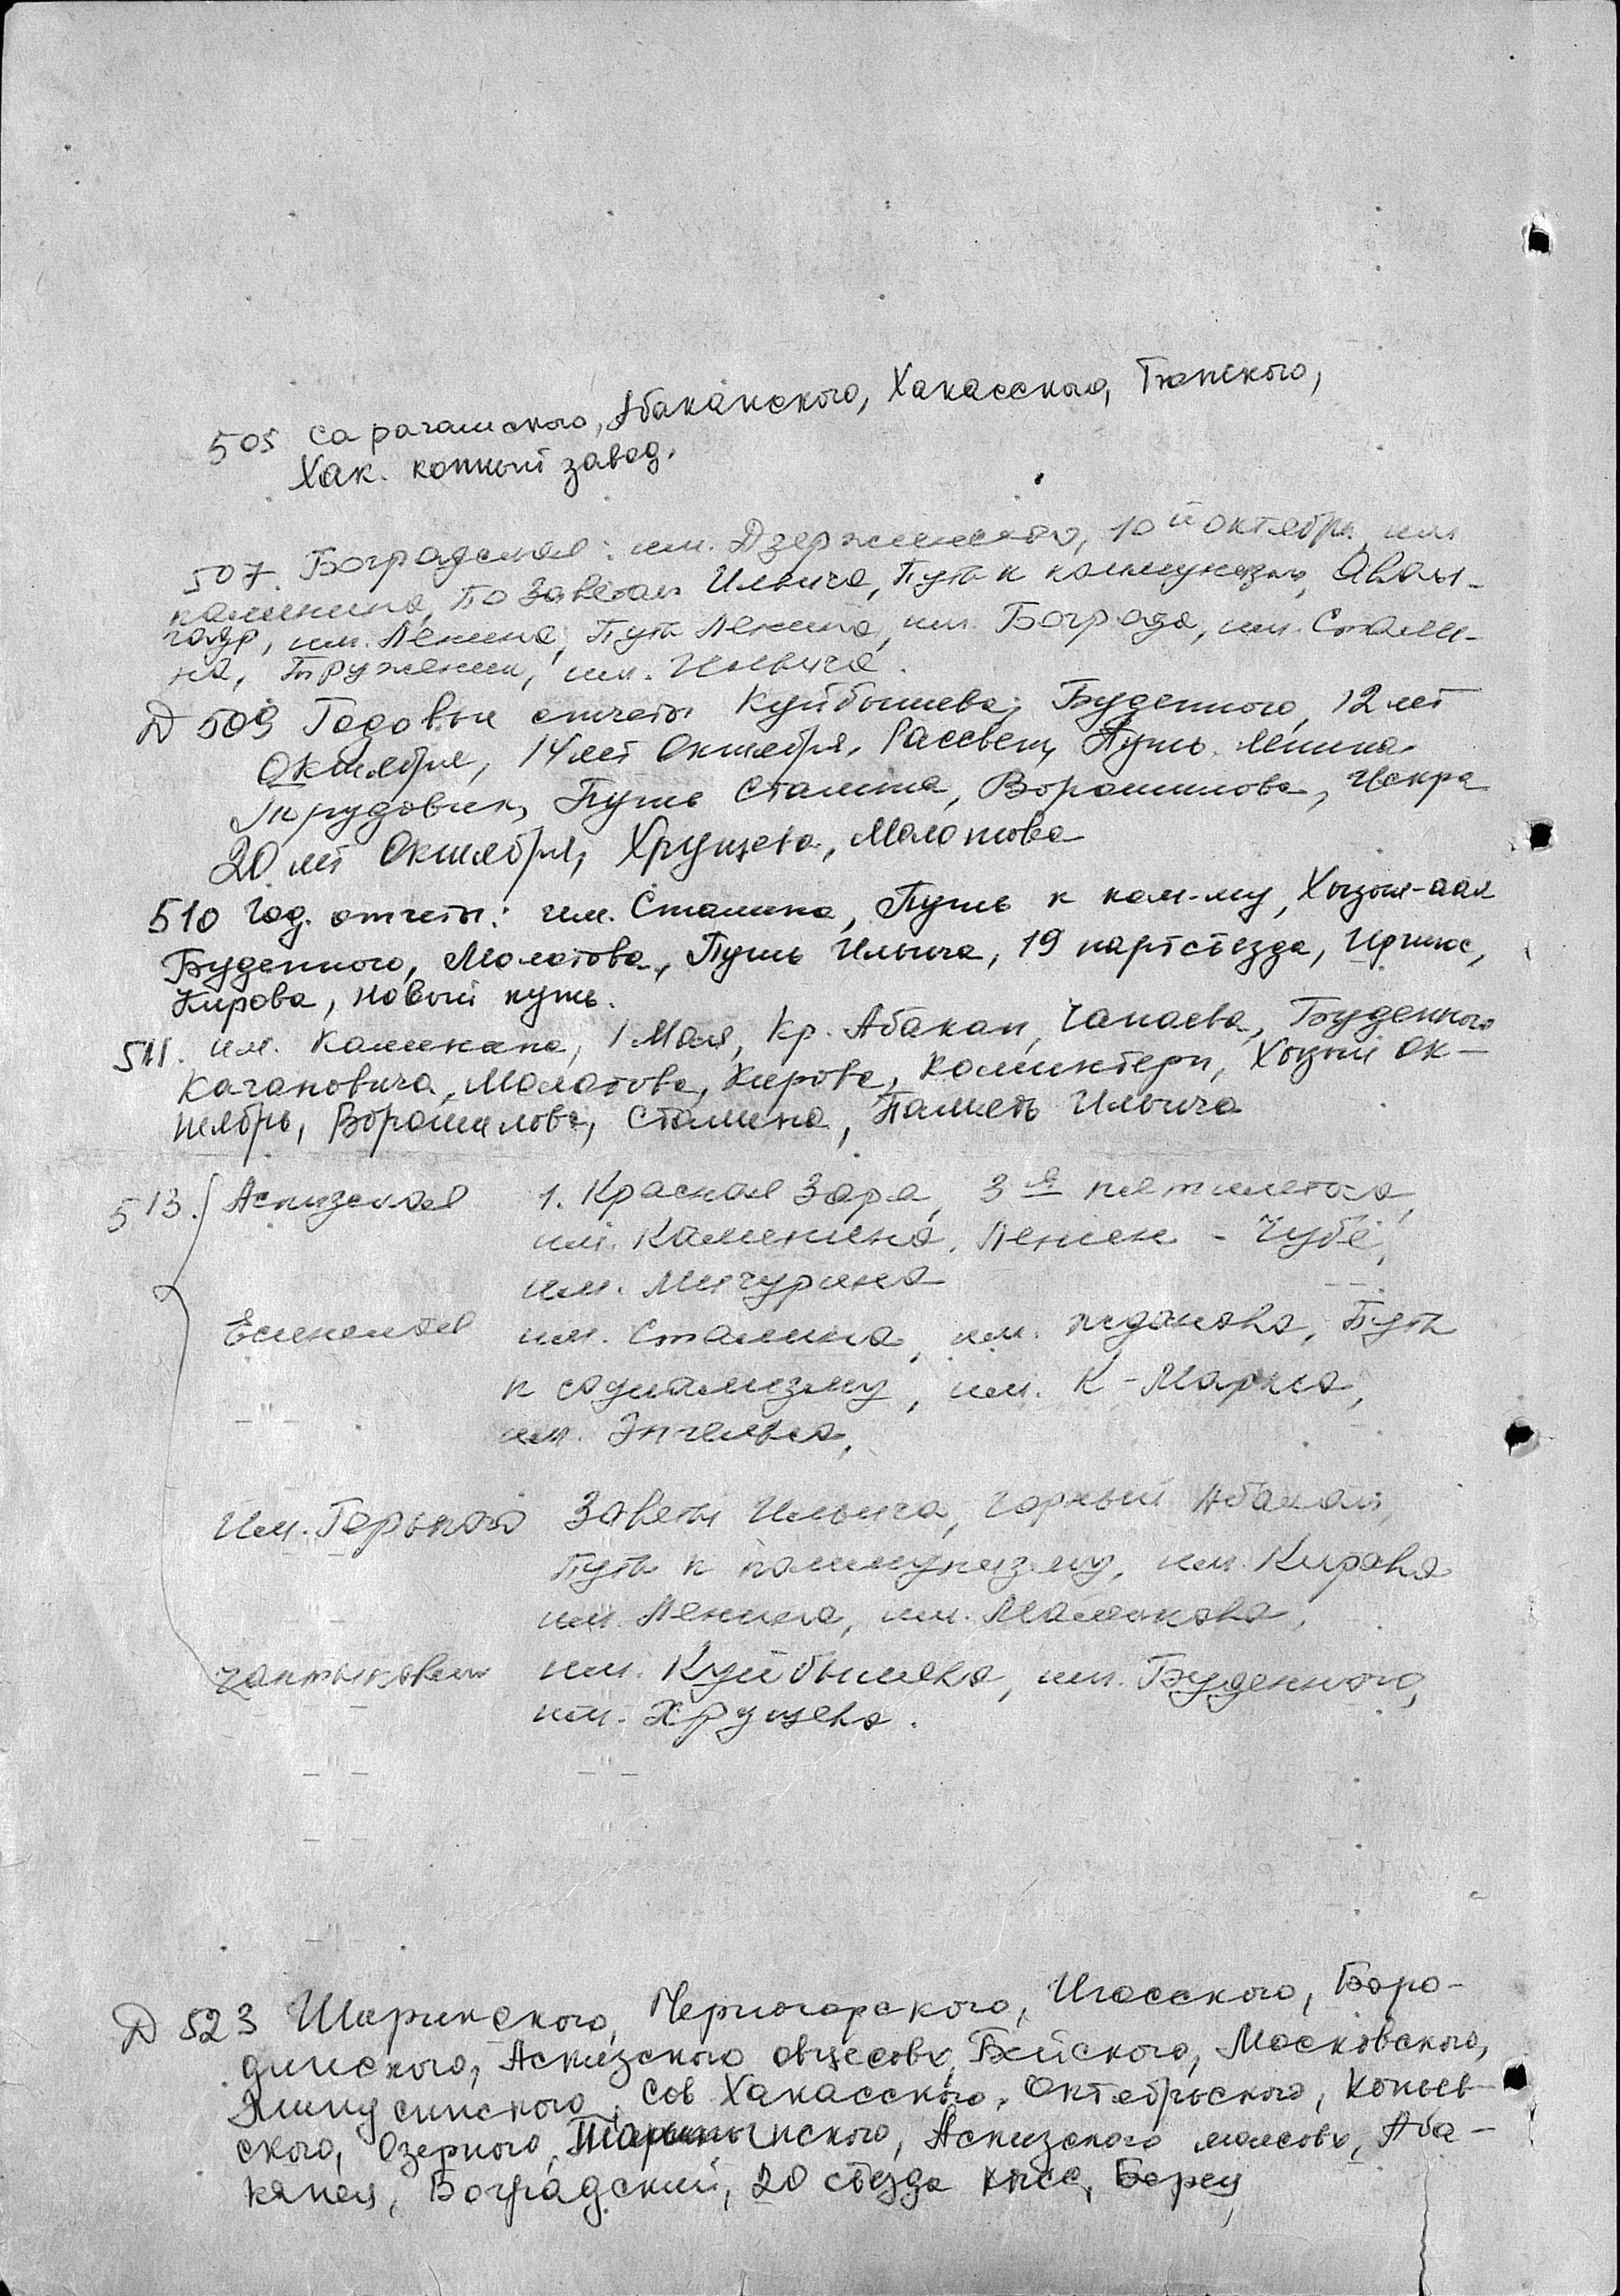 505 Сарагашского, Абаканского, Хакасского, Тюпского,
Хак. конный завод.
507. Боградская: им. Дзержинского, 10й октябрь, им
Калинина, по Заветам Ильича, Путь к коммунизму, Аван-
гард, им. Ленина, Путь Ленина, им. Бограда, им. Стали-
на, Труженик, им. Ильича.
Д 509 Годовые отчеты Куйбышева; Буденного, 12 лет
Октября, 14 лет Октября, Рассвет, Путь Ленина
Трудовик, Путь Сталина, Ворошилова, Искра
20 лет Октября, Хрущева, Молотова
510 Год. отчеты: им. Сталина, Путь к ком-му, Хызыл-аал
Буденного, Молотова, Путь Ильича, 19 партсъезда,
Кирова, Новый путь.
511. им. Калинина, 1 Мая, Кр. Абакан, Чапаева, Буденного
Кагановича, Молотова, Кирова, Коминтерн, Хызыл Ок-
тябрь, Ворошилова, Сталина, Память Ильича
513. Аскизская 1. Красная Заря, 3я пятилетка,
им. Калинина, Ленин - Чубе,
им. Мичурина
Есинская им. Сталина, им. Жданова, Путь
к социализму, им. К-Маркса,
-"- им. Энгельса,
Им. Горького Заветы Ильича, Горный Абакан,
Путь к коммунизму, им. Кирова
им. Ленина, им. Маленкова,
Чаптыковск им. Куйбышева, им. Буденного,
им. Хрущева.
Д 523 Ширинского, Черногорского, Июсского, Боро-
динского, Аскизского овцесовх, Бейского, Московского,
сов Хакасского, Октябрьского, Копьев-
ского, Озерного, Аскизского молсовх, Аба-
канск, Боградский, 20 съезда кпсс, Борец